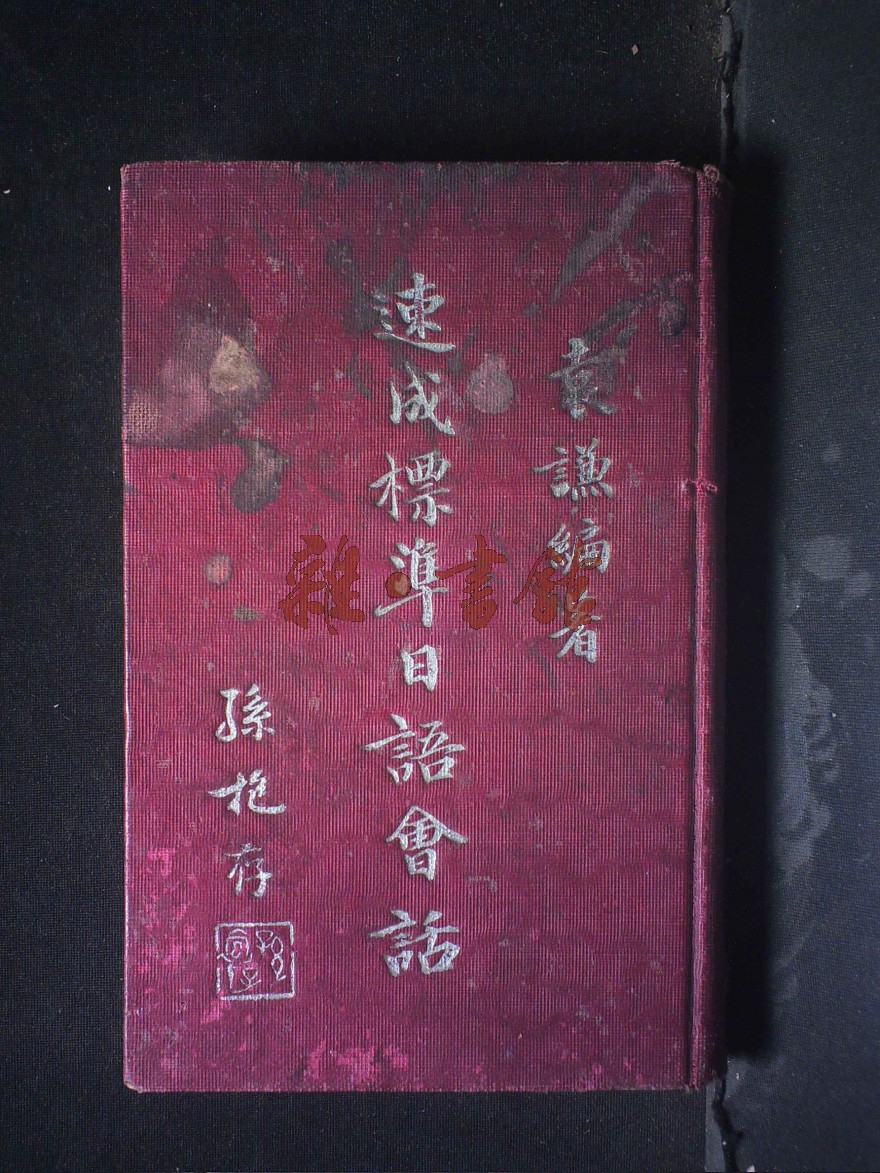 袁謙編者
速成標準日語會話
孫拖存
雜·書館